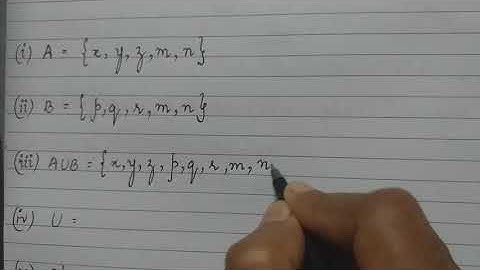 (i) A = {x, y, z, m, n}
(ii) B = {p, q, r, m, n}
(iii) A∪B = {x, y, z, p, q, r, m, n
(iv) U =